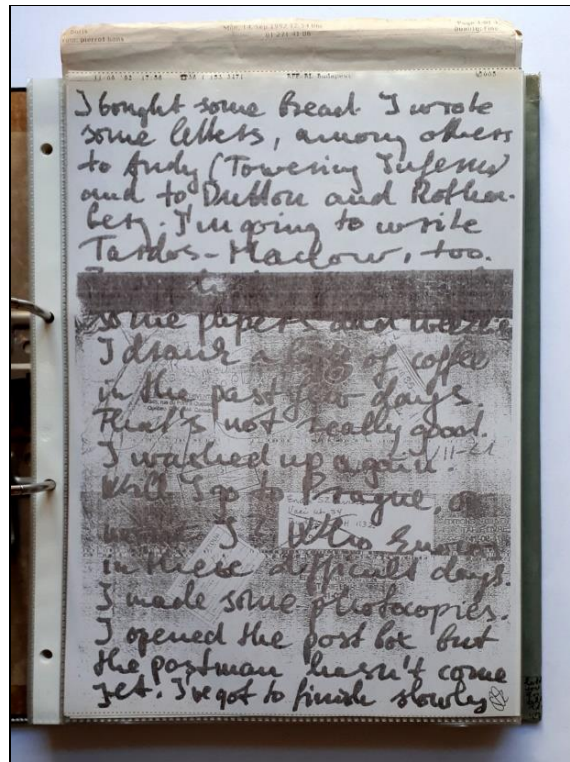 Mon, 14 Sep 1992
11-09-92 17:58 RFF-RS Budapest
I bought some bread. I wrote
some letters, among others
to Andy (Towering Inferno)
and to Dutton and Rothen-
berg. I'm going to write
Tardos-Maclow, too.
some papers and
I drank a lot of coffee
in the past few days.
That's not really good.
VII-21
I washed up again.
Will I go to Prague, or
won't I? Who knows
in these difficult days.
I made some photocopies.
I opened the post box but
the postman hasn't come
yet. I've got to finish slowly